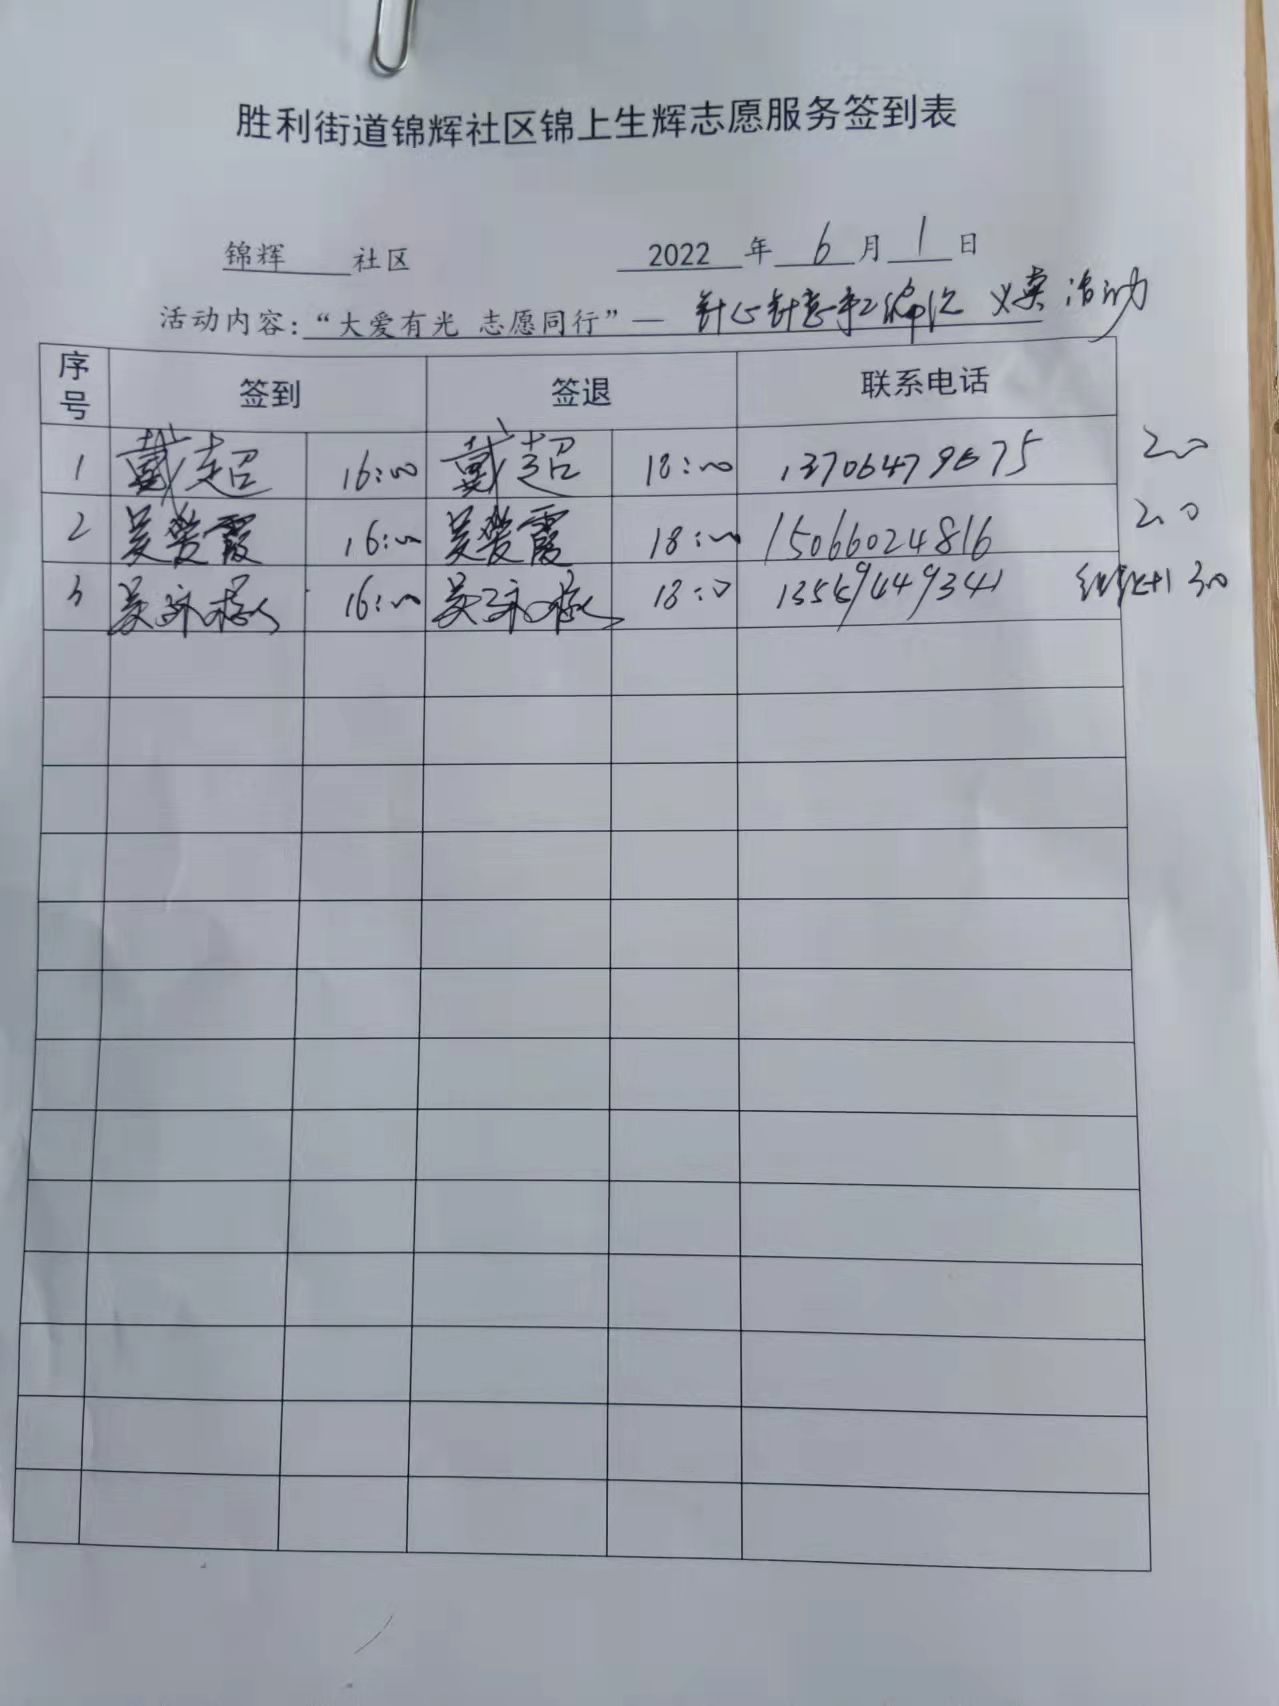 胜利街道锦辉社区锦上生辉志愿服务签到表
锦辉 社区 2022 年 6 月 1 日
活动内容：“大爱有光 志愿同行”— 针心针意手工编织 义卖 活动
序号 签到 签退 联系电话
1 戴超 16:00 戴超 18:00 13706479675 2.0
2 吴荣霞 16:00 吴荣霞 18:00 15066024816 2.0
3 16:00 18:0 +1 3.0